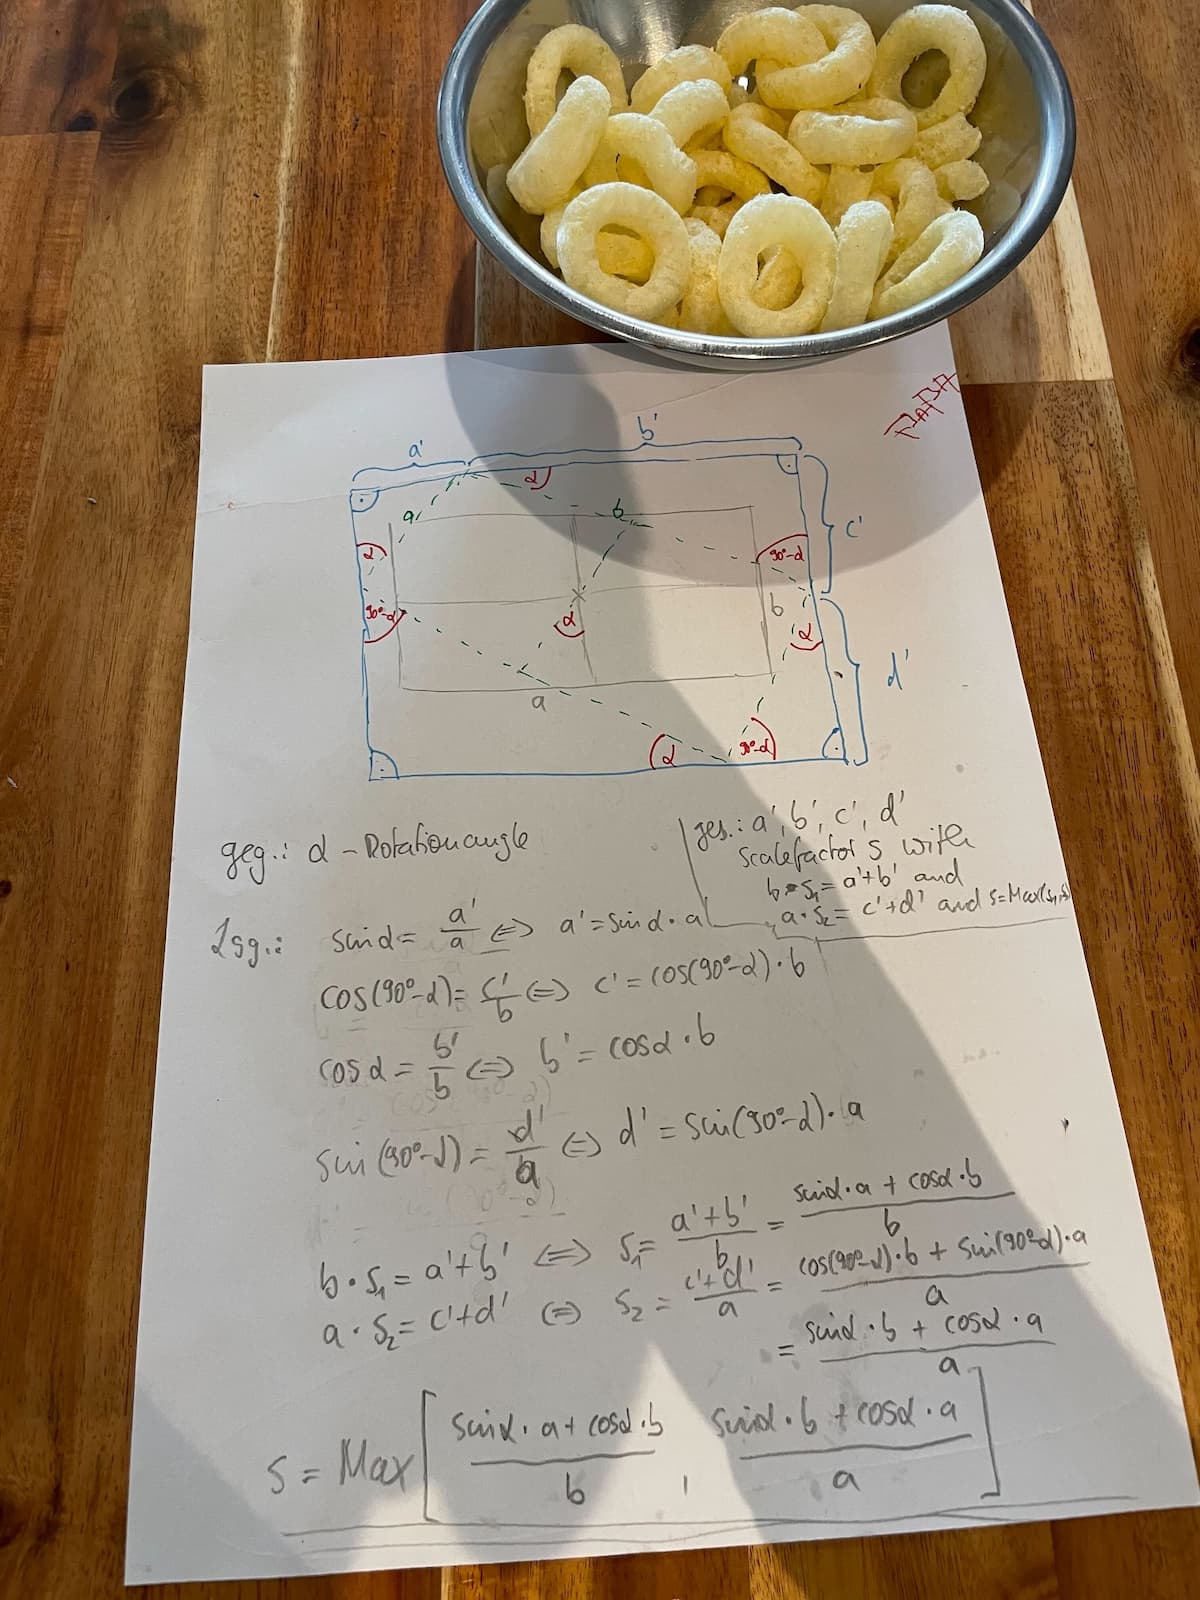 PAPA
a' b'
α
a b
α 90°-α c'
90°-α α b α
d'
a
α 90°-α
geg.: α - Rotationangle
ges.: a', b', c', d'
scalefactor s with
b·s₁ = a'+b' and
a·s₂ = c'+d' and s=Max(s₁,s₂)
Lsg.: sinα = a'/a ⇔ a' = sinα·a
cos(90°-α) = c'/b ⇔ c' = cos(90°-α)·b
cosα = b'/b ⇔ b' = cosα·b
sin(90°-α) = d'/a ⇔ d' = sin(90°-α)·a
b·s₁ = a'+b' ⇔ s₁ = (a'+b')/b = (sinα·a + cosα·b)/b
a·s₂ = c'+d' ⇔ s₂ = (c'+d')/a = (cos(90°-α)·b + sin(90°-α)·a)/a
= (sinα·b + cosα·a)/a
s = Max[(sinα·a + cosα·b)/b , (sinα·b + cosα·a)/a]